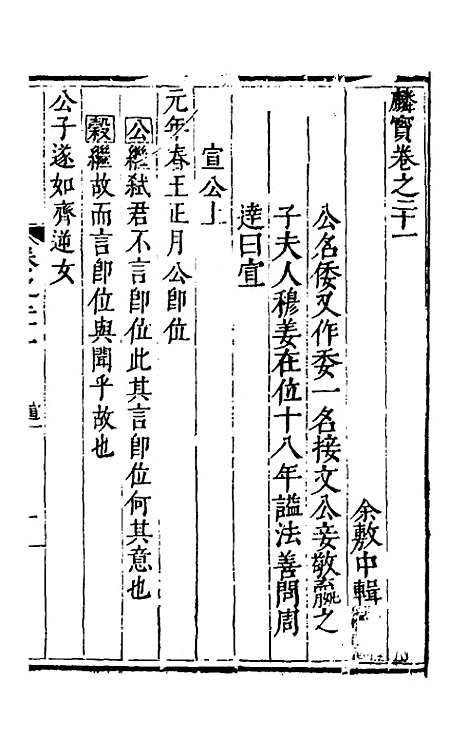 麟寶卷之二十一
余敷中輯
公名倭又作委一名接文公妾敬嬴之
子夫人穆姜在位十八年謚法善問周
達曰宣
宣公上
元年春王正月公卽位
公繼弑君不言卽位此其言卽位何其意也
穀繼故而言卽位與聞乎故也
公子遂如齊逆女